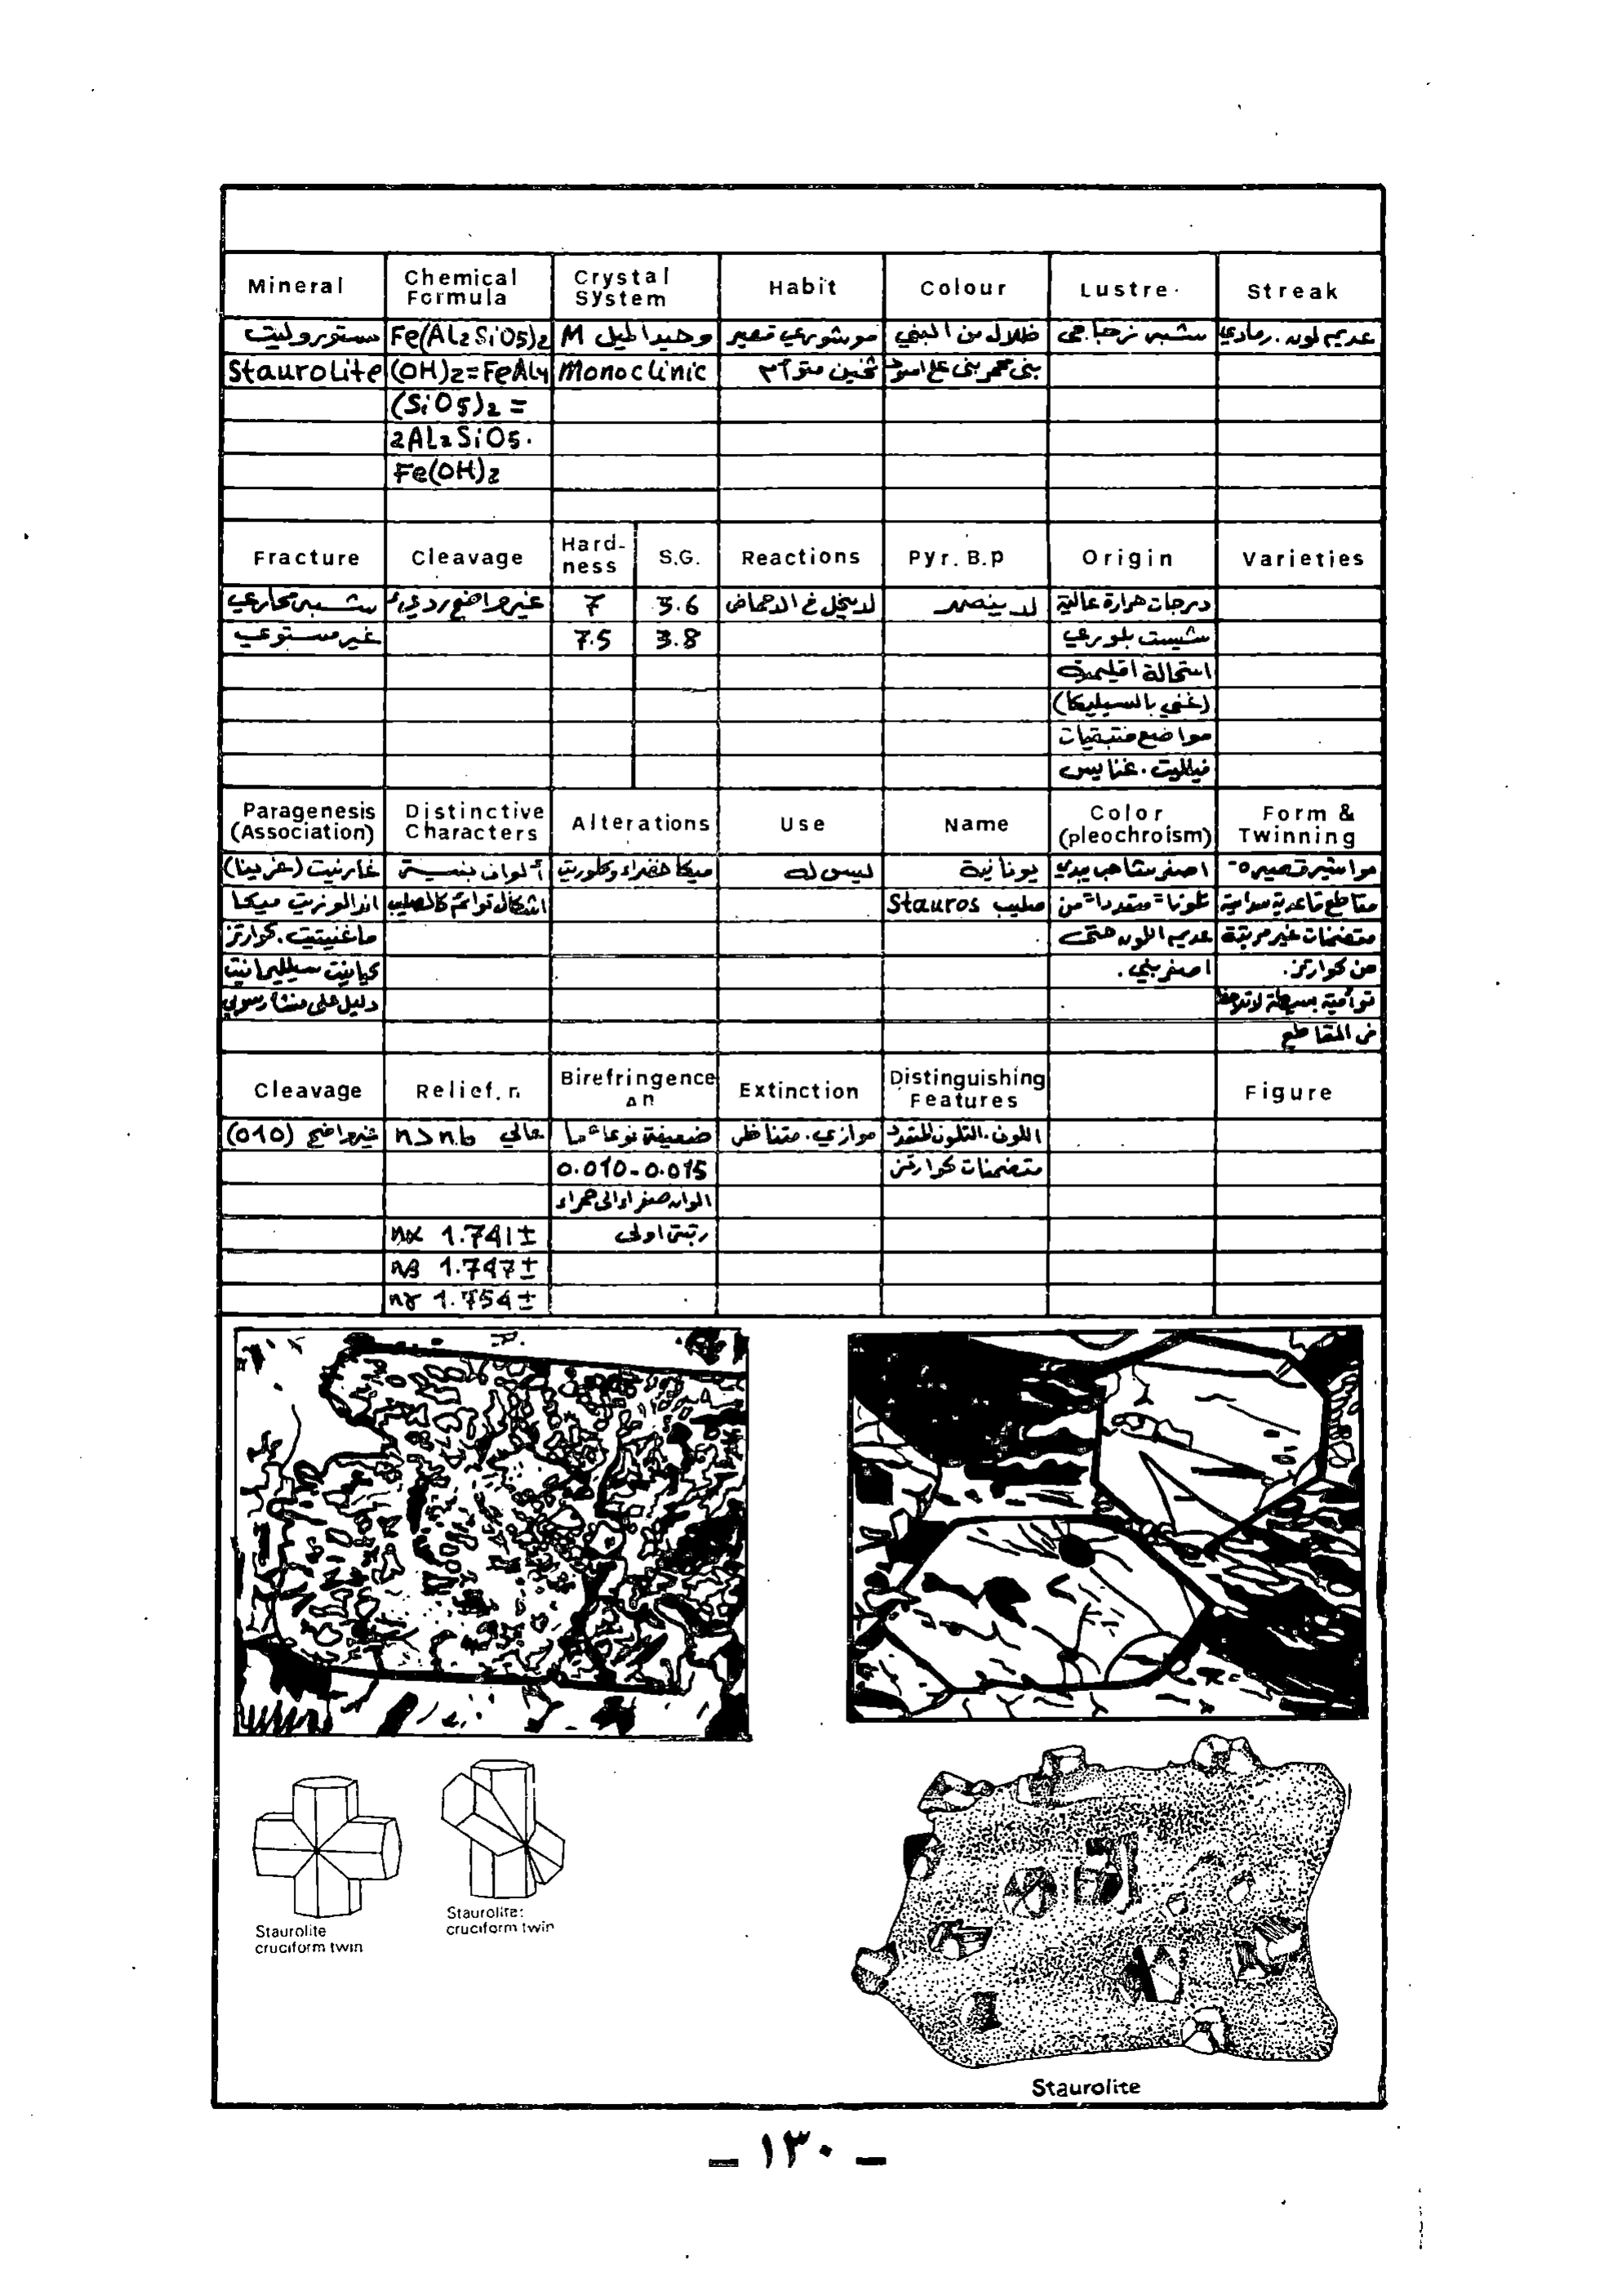 Mineral Chemical Formula Crystal System Habit Colour Lustre Streak
ستوروليت Fe(Al2SiO5)2 وحيد الميل M موشوري قصير ظلال من البني شبه زجاجي عديم لون. رمادي
Staurolite (OH)2=FeAl4 Monoclinic ثخين متوآم بني محمر بني على اسود
(SiO5)2 =
2Al2SiO5.
Fe(OH)2
Fracture Cleavage Hard-ness S.G. Reactions Pyr. B.p Origin Varieties
شبه محاري غير واضح رديء 7 3.6 لا ينحل في الاحماض لا ينصهر درجات حرارة عالية
غير مستوي 7.5 3.8 شيست بلوري
استحالة اقليمية
(غني بالسيليكا)
مواضع
فيلليت. غنايس
Paragenesis (Association) Distinctive Characters Alterations Use Name Color (pleochroism) Form & Twinning
غارنيت (غرينا) ألوان بنية ميكا خضراء وكلوريت ليس له يونانية اصفر شاحب يبدي مواشير قصيرة
اندالوزيت ميكا اشكال توائم كالصليب Stauros صليب تلونا متعددا من مقاطع قاعدية سداسية
ماغنيتيت. كوارتز عديم اللون حتى متضمنات غير مرتبة
كيانيت سيليمانيت اصفر بني. من كوارتز.
دليل على منشأ رسوبي توأمية بسيطة لا تلاحظ
في المقاطع
Cleavage Relief. n Birefringence Δn Extinction Distinguishing Features Figure
غير واضح (010) عالي n>n.b ضعيفة نوعا ما موازي. متناظر اللون. التلون المتعدد
0.010-0.015 متضمنات كوارتز
الوان صفراء الى حمراء
nα 1.741± رتبة اولى
nβ 1.747±
nγ 1.754±
Staurolite
cruciform twin
Staurolite:
cruciform twin
Staurolite
- ١٣٠ -